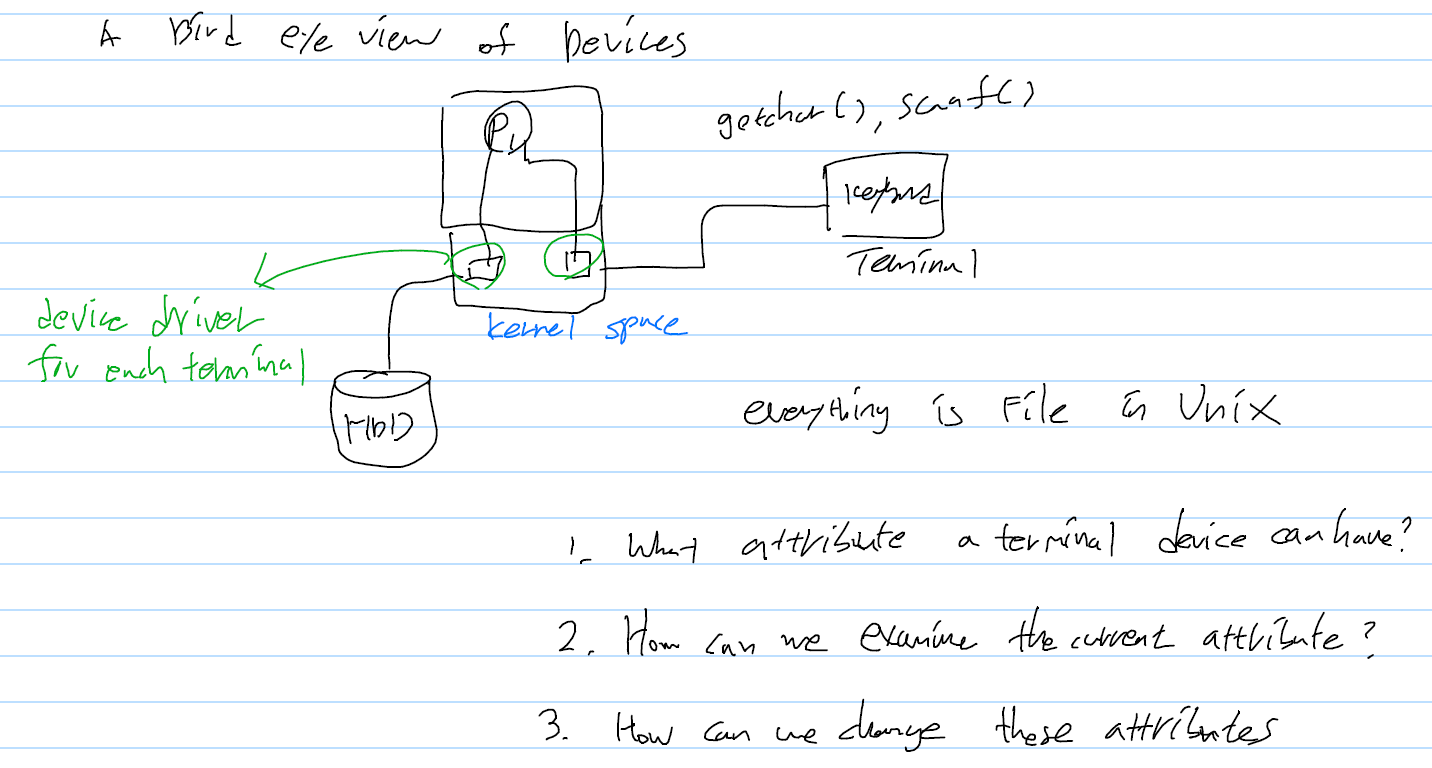 A Bird eye view of Devices
getchar(), scanf()
P1
keyboard
Terminal
device driver
for each terminal
kernel space
HDD
everything is File in Unix
1. What attribute a terminal device can have?
2. How can we examine the current attribute?
3. How can we change these attributes